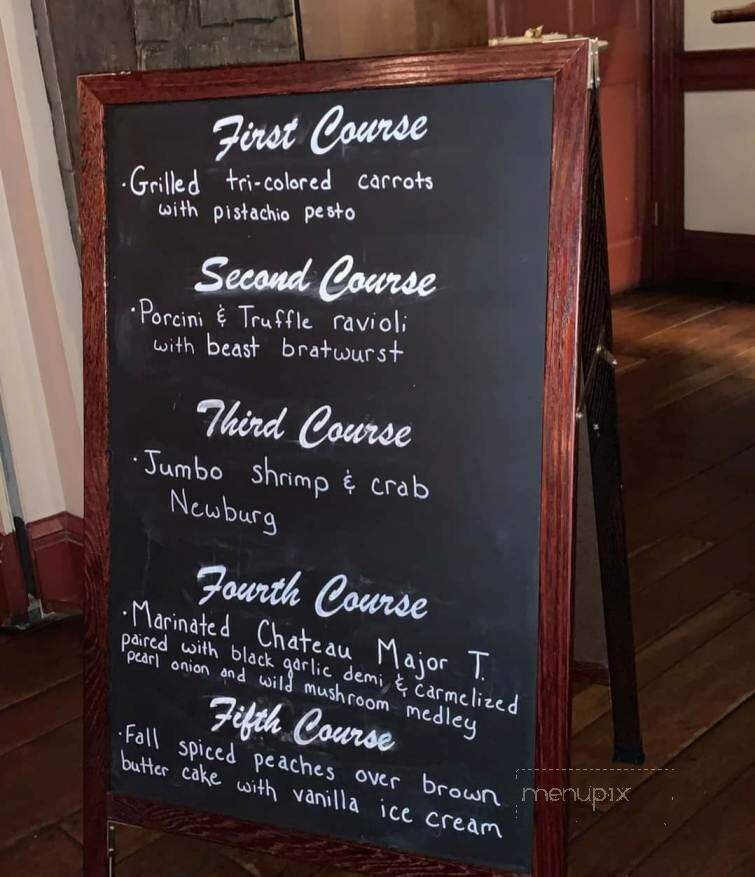 First Course
·Grilled tri-colored carrots
with pistachio pesto
Second Course
·Porcini & Truffle ravioli
with beast bratwurst
Third Course
·Jumbo shrimp & crab
Newburg
Fourth Course
·Marinated Chateau Major T.
paired with black garlic demi & carmelized
pearl onion and wild mushroom medley
Fifth Course
·Fall spiced peaches over brown
butter cake with vanilla ice cream
menupix